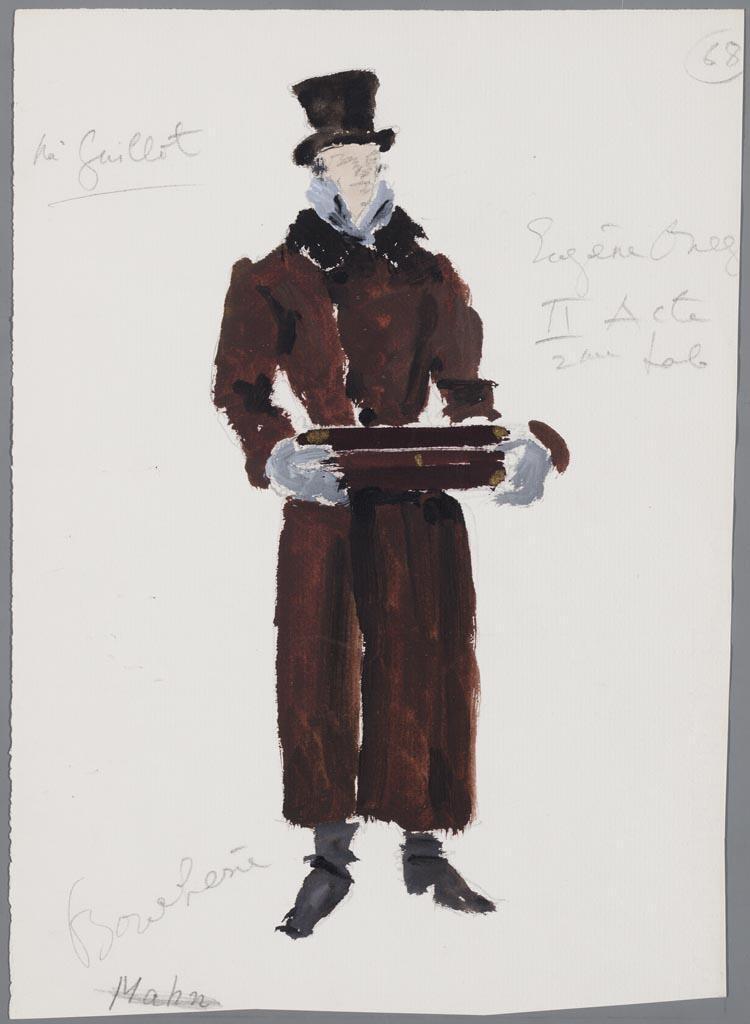 68
Guillot
Eugène Oneg
II Acte
2me tab
Mahn